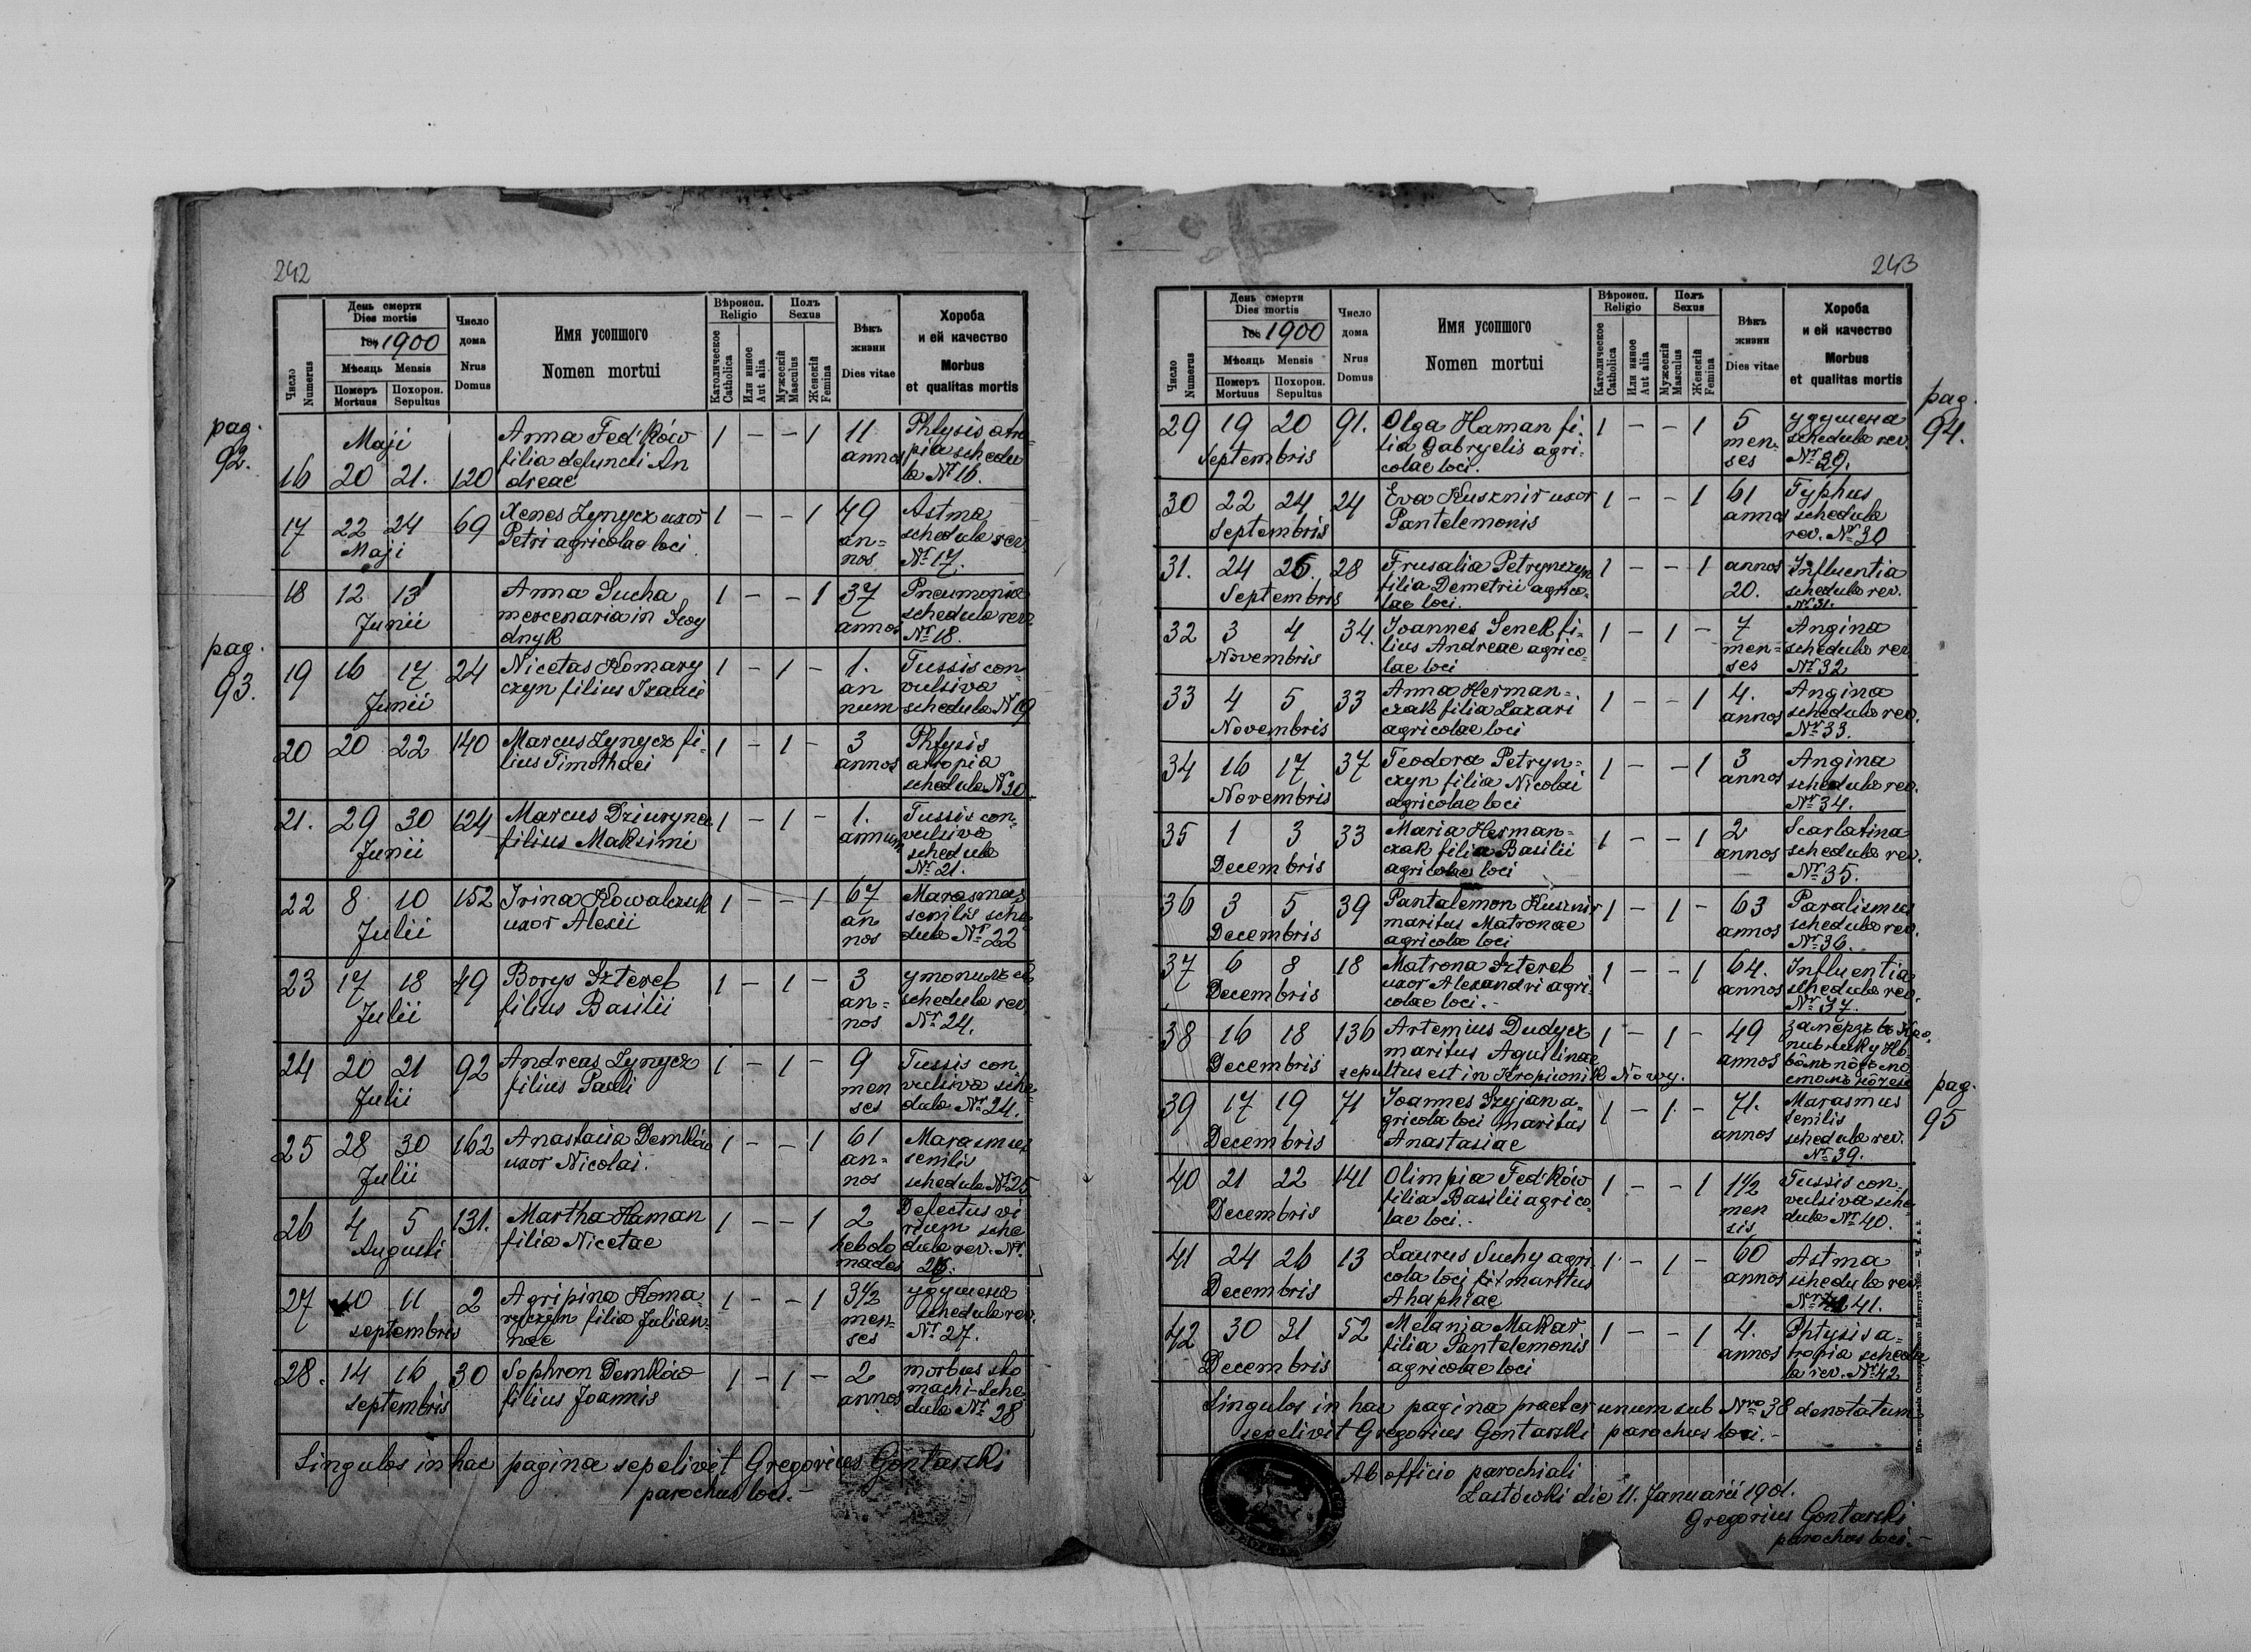 242
День смерти
Dies mortis
189 1900
Мѣсяць Mensis
Померъ Mortuus
Похорон. Sepultus
Число Numerus
Число дома
Nrus Domus
Имя усопшого
Nomen mortui
Вѣроисп.
Religio
Католическое Catholica
Или инное Aut alia
Полъ
Sexus
Мужескій Masculus
Женскій Femina
Вѣкъ жизни
Dies vitae
Хороба и ей качество
Morbus et qualitas mortis
pag. 92.
Maji
16 20 21. 120 Anna Fed'ków filia defuncti An dreae 1 – – 1 11 annos Phtysis atro= pia schedu la Nr 16.
17 22 24 Maji 69 Xenes Łynycz uxor Petri agricolae loci. 1 – – 1 49 an= nos Astma schedula rev. Nr 17.
18 12 13 Junii Anna Sucha mercenaria in Smog dnyk 1 – – 1 37 annos Pneumonia schedula rev. Nr 18.
pag. 93.
19 16 17 Junii 24 Nicetas Komary czyn filius Isaaci 1 – 1 – 1. an num Tussis con= vulsiva schedula N 19
20 20 22 140 Marcus Łynycz fi= lius Timothaei 1 – 1 – 3 annos Phtysis atropia schedula N 20.
21. 29 30 Junii 124 Marcus Dziurynec filius Maksimi 1 – 1 – 1. annum Tussis con= vulsiva schedula Nr 21.
22 8 10 Julii 152 Irina Kowalczuk uxor Alexii 1 – – 1 67 an nos Marasmus senilis sche dula Nr 22
23 17 18 Julii 49 Borys Sztereb filius Basilii 1 – 1 – 3 an= nos schedula rev. Nr 24.
24 20 21 Julii 92 Andreas Łynycz filius Pauli 1 – 1 – 9 men ses Tussis con= vulsiva sche= dula Nr 24.
25 28 30 Julii 162 Anastasia Demków uxor Nicolai. 1 – – 1 61 an= nos Marasmus senilis schedula Nr 25
26 4 5 Augusti 131. Martha Haman filia Nicetae 1 – – 1 2 hebdo mades Defectus vi rium sche dula rev. Nr. 26.
27 10 11 septembris 2 Agripina Koma= ryczyn filia Julian= nae 1 – – 1 3 1/2 men= ses удушена schedula rev. Nr 27.
28. 14 16 septembris 30 Sophron Demków filius Joannis 1 – 1 – 2 annos morbus sto machi– sche dula Nr 28
Singulos in hac pagina sepelivit Gregorius Gontarski
parochus loci.–
243
День смерти
Dies mortis
189 1900
Мѣсяць Mensis
Померъ Mortuus
Похорон. Sepultus
Число Numerus
Число дома
Nrus Domus
Имя усопшого
Nomen mortui
Вѣроисп.
Religio
Католическое Catholica
Или инное Aut alia
Полъ
Sexus
Мужескій Masculus
Женскій Femina
Вѣкъ жизни
Dies vitae
Хороба и ей качество
Morbus et qualitas mortis
pag. 94.
29 19 20 Septembris 91. Olga Haman fi= lia Gabryelis agri= colae loci. 1 – – 1 5 men= ses удушена schedula rev. Nr 29.
30 22 24 Septembris 24 Eva Kusznir uxor Pantelemonis 1 – – 1 61 annos Typhus schedula rev. Nr 30
31. 24 26. Septembris 28 Frusalia Petrynczyn filia Demetrii agrico= lae loci. 1 – – 1 annos 20. Influentia schedula rev. Nr 31.
32 3 4 Novembris 34. Joannes Senek fi= lius Andreae agrico= lae loci 1 – 1 – 7 men= ses Angina schedula rev. Nr 32
33 4 5 Novembris 33 Anna Herman= czak filia Lazari agricolae loci 1 – – 1 4. annos Angina schedula rev. Nr 33.
34 16 17 Novembris 37 Teodora Petryn= czyn filia Nicolai agricolae loci 1 – – 1 3 annos Angina schedula rev. Nr 34.
35 1 3 Decembris 33 Maria Herman= czak filia Basilii agricolae loci 1 – – 1 2 annos Scarlatina schedula rev. Nr 35.
36 3 5 Decembris 39 Pantalemon Kusznir maritus Matronae agricola loci 1 – 1 – 63 annos Paralismus schedula rev. Nr 36.
37 6 8 Decembris 18 Matrona Sztereb uxor Alexandri agri= colae loci.– 1 – – 1 64. annos Influentia schedula rev. Nr 37.
38 16 18 Decembris 136 Artemius Dudycz maritus Aquilinae sepultus est in Kropiwnik Nowy. 1 – 1 – 49 annos
pag. 95
39 17 19 Decembris 71 Joannes Szyjan a= gricola loci maritus Anastasiae 1 – 1 – 71. annos Marasmus senilis schedula rev. Nr 39.
40 21 22 Decembris 141 Olimpia Fed'ków filia Basilii agrico= lae loci.– 1 – – 1 1 1/2 men sis Tussis con= vulsiva sche= dula Nr 40.
41 24 26 Decembris 13 Laurus Suchy agri= cola loci maritus Ahaphiae 1 – 1 – 60 annos Astma schedula rev. Nr 41.
42 30 31 Decembris 52 Melanja Makar filia Pantelemonis agricolae loci 1 – – 1 4. annos Phtysis a= tropia schedu la rev. Nr 42
Singulos in hac pagina praeter unum sub Nro 38 denotatum
sepelivit Gregorius Gontarski parochus loci.–
Ab officio parochiali
Łastówki die 11. Januarii 1901.
Gregorius Gontarski
parochus loci.–